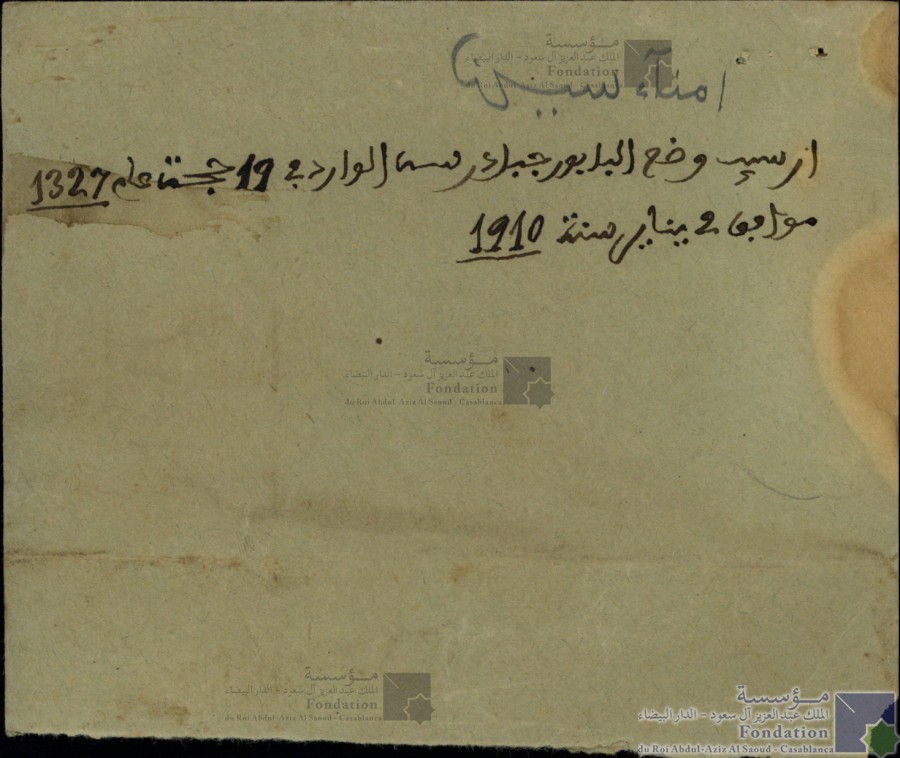 امناء
مؤسسة
الملك عبد العزيز آل سعود - الدار البيضاء
Fondation
du Roi Abdul-Aziz Al Saoud - Casablanca
وضع البابور الوارد في 19 حجة عام 1327
موافق 2 يناير سنة 1910
مؤسسة
الملك عبد العزيز آل سعود - الدار البيضاء
Fondation
du Roi Abdul-Aziz Al Saoud - Casablanca
مؤسسة
الملك عبد العزيز آل سعود - الدار البيضاء
Fondation
du Roi Abdul-Aziz Al Saoud - Casablanca
مؤسسة
الملك عبد العزيز آل سعود - الدار البيضاء
Fondation
du Roi Abdul-Aziz Al Saoud - Casablanca